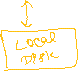 LOCAL
DISK